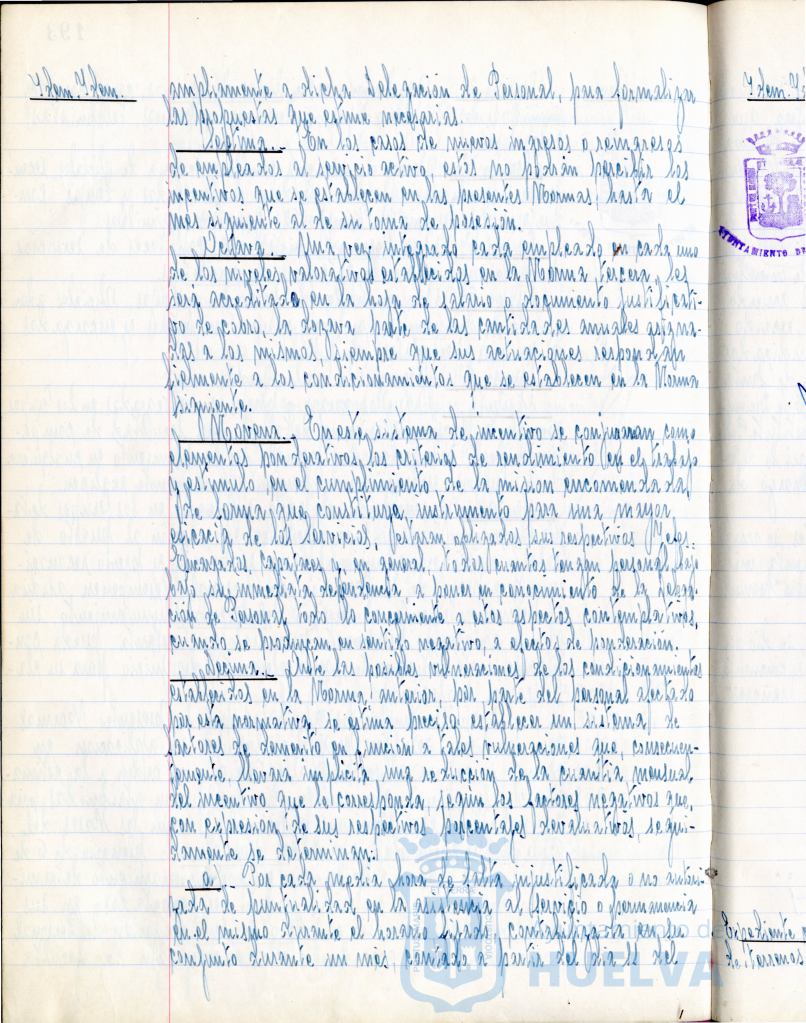 Idem. Idem.
ampliamente a dicha Delegación de Personal, para formalizar
las propuestas que estime necesarias.
Séptima.- En los casos de nuevos ingresos o reingresos
de empleados al servicio activo, estos no podrán percibir los
incentivos que se establecen en las presentes Normas, hasta el
mes siguiente al de su toma de posesión.
Octava.- Una vez integrado cada empleado en cada uno
de los niveles valorativos establecidos en la Norma Tercera, les
será acreditado, en la hoja de salario o documento justificati-
vo de cobro, la dozava parte de las cantidades anuales asigna-
das a los mismos, siempre que sus actuaciones respondan
fielmente a los condicionamientos que se establecen en la Norma
siguiente.
Novena.- En este sistema de incentivo se conjugaran como
elementos ponderativos los criterios de rendimiento en el trabajo
y estímulo en el cumplimiento de la misión encomendada,
de forma que constituya instrumento para una mayor
eficacia de los servicios, estaran obligados sus respectivos Jefes,
Encargados, capataces y, en general, todos cuantos tengan personal bajo
su inmediata dependencia a poner en conocimiento de la Delega-
ción de Personal todo lo concerniente a estos aspectos contemplativos,
cuando se produzcan en sentido negativo, a efectos de ponderación.
Décima.- Ante las posibles vulneraciones de los condicionamientos
establecidos en la Norma anterior, por parte del personal afectado
por esta normativa, se estima preciso establecer un sistema de
factores de demérito en función a tales vulneraciones que, consecuen-
temente, llevara implícita una reducción de la cuantía mensual
del incentivo que le corresponda, según los factores negativos que,
con expresión de sus respectivos porcentajes devaluativos, segui-
damente se determinan:
a. Por cada media hora de falta injustificada o no autori-
zada de puntualidad en la asistencia al servicio o permanencia
en el mismo durante el horario fijado, contabilizada en su
conjunto durante un mes, contado a partir del día 15 del
Idem. Id
AYUNTAMIENTO DE
Expediente
de terrenos
HUELVA